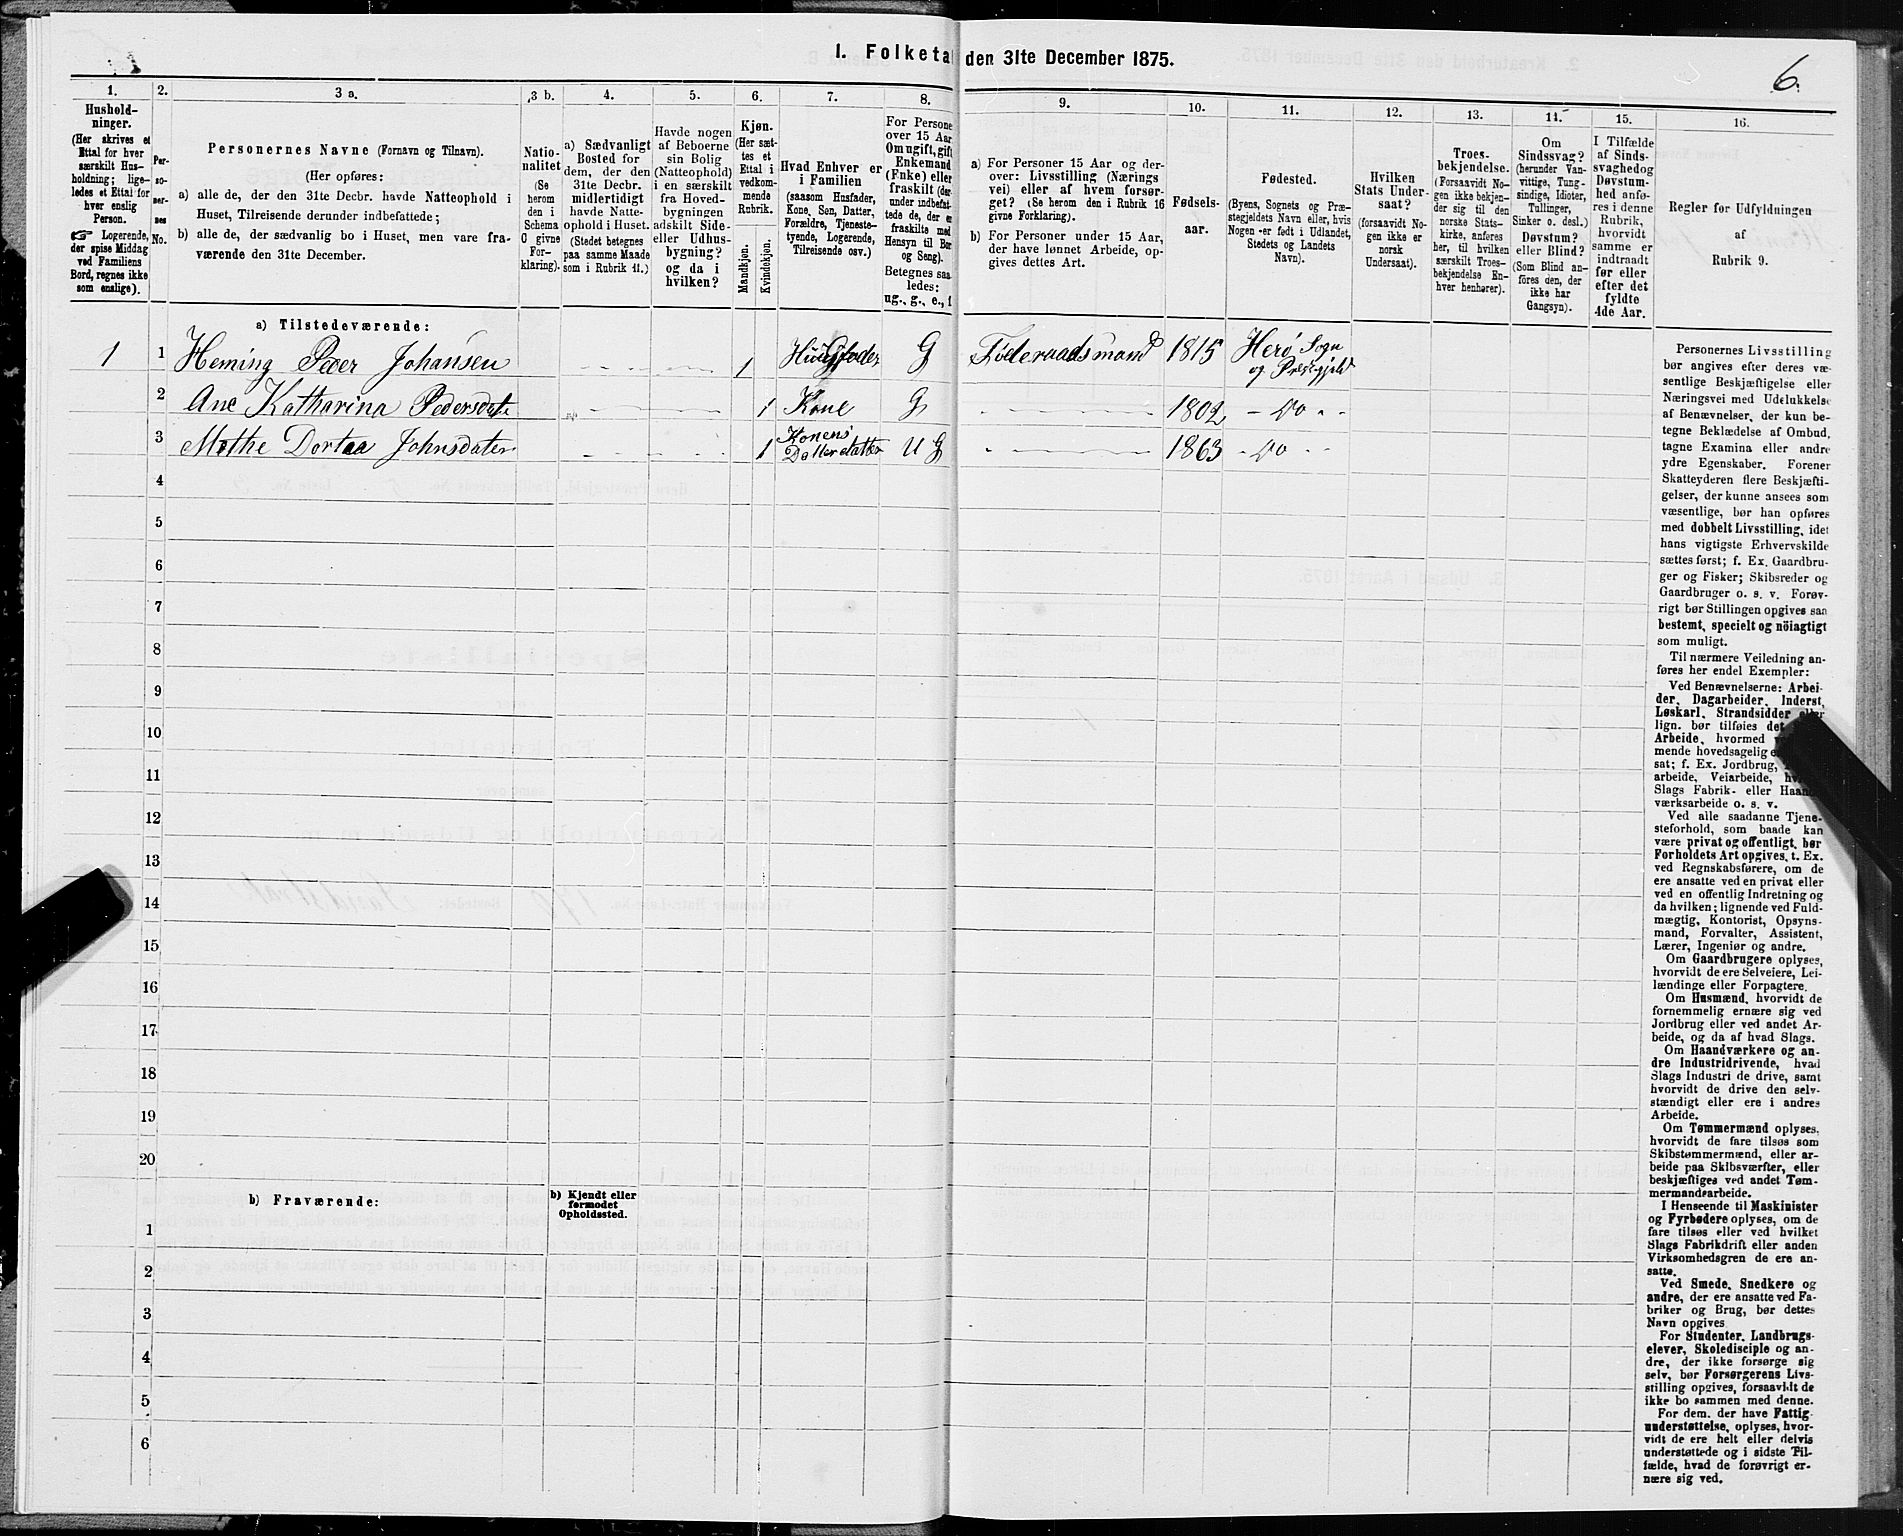 I. Folketal den 31te December 1875.
6.
1.
Hushold-
ninger.
(Her skrives et
Ettal for hver
særskilt Hus-
holdning; lige-
ledes et Ettal for
hver enslig
Person.
☞ Logerende,
der spise Middag
ved Familiens
Bord, regnes ikke
som enslige).
2.
Per-
so-
ner-
nes
No.
3 a.
Personernes Navne (Fornavn og Tilnavn).
(Her opføres:
a) alle de, der den 31te Decbr. havde Natteophold i
Huset, Tilreisende derunder indbefattede;
b) alle de, der sædvanlig bo i Huset, men vare fra-
værende den 31te December.
3 b.
Natio-
nalitet
(Se
herom
den i
Schema
G givne
For-
klaring).
4.
a) Sædvanligt
Bosted for
dem, der den
31te Decbr.
midlertidigt
havde Natte-
ophold i Huset.
(Stedet betegnes
paa samme Maade
som i Rubrik 11.)
5.
Havde nogen
af Beboerne
sin Bolig
(Natteophold)
i en særskilt
fra Hoved-
bygningen
adskilt Side-
eller Udhus-
bygning?
og da i
hvilken?
6.
Kjøn.
(Her sæt-
tes et
Ettal i
vedkom-
mende
Rubrik.
Mandkjøn.
Kvindekjøn.
7.
Hvad Enhver er
i Familien
(saasom Husfader,
Kone, Søn, Datter,
Forældre, Tjeneste-
tyende, Logerende,
Tilreisende osv.)
8.
For Persone
over 15 Aar
Om ugift, gift
Enkemand
(Enke) eller
fraskilt (der-
under indbefat-
tede de, der er
fraskilte med
Hensyn til Bor
og Seng).
Betegnes saa-
ledes:
ug., g., e., f
9.
a) For Personer 15 Aar og der-
over: Livsstilling (Nærings
vei) eller af hvem forsør-
get? (Se herom den i Rubrik 16
givne Forklaring).
b) For Personer under 15 Aar,
der have lønnet Arbeide, op-
gives dettes Art.
10.
Fødsels-
aar.
11.
Fødested.
(Byens, Sognets og Præ-
stegjeldets Navn eller, hvis
Nogen er født i Udlandet,
Stedets og Landets
Navn).
12.
Hvilken
Stats Under-
saat?
(forsaavidt No-
gen ikke er
norsk
Undersaat).
13.
Troes-
bekjendelse.
(Forsaavidt No-
gen ikke bekjen-
der sig til den
norske Stats-
kirke, anføres
her, til hvilken
særskilt Troes-
bekjendelse En-
hver henhører).
14.
Om
Sindssvag?
(herunder Van-
vittige, Tung-
sindige, Idioter,
Tullinger,
Sinker o. desl.)
Døvstum?
eller Blind?
(Som Blind an-
føres den, der
ikke har
Gangsyn).
15.
I Tilfælde
af Sinds-
svaghedog
Døvstum-
hed anfø-
res i denne
Rubrik,
hvorvidt
samme er
indtraadt
før eller
efter det
fyldte
4de Aar.
16.
Regler for Udfyldningen
af
Rubrik 9.
a) Tilstedeværende:
1 1 Heming Peer Johansen 1 Huusfader G Føderaadsmand 1815 Herø Sogn
og Præstegjeld
2 Ane Katharina Pedersdatr 1 Kone G 1802 - Do - -
3 Mathe Dortea Johnsdater 1 Konens
Datterdatter U G 1863 - Do - -
4
5
6
7
8
9
10
11
12
13
14
15
16
17
18
19
20
b) Fraværende:
b) Kjendt eller
formodet
Opholdssted.
1
2
3
4
5
6
Personernes Livsstilling
bør angives efter deres væ-
sentlige Beskjæftigelse eller
Næringsvei med Udelukkelse
af Benævnelser, der kun be-
tegne Beklædelse af Ombud,
tagne Examina eller andre
ydre Egenskaber. Forener
Skatteyderen flere Beskjæfti-
gelser, der kunne ansees som
væsentlige, bør han opføres
med dobbelt Livsstilling, idet
hans vigtigste Erhvervskilde
sættes først; f. Ex. Gaardbru-
ger og Fisker; Skibsreder og
Gaardbruger o. s. v. Forøv-
rigt bør Stillingen opgives saa
bestemt, specielt og nöiagtigt
som muligt.
Til nærmere Veiledning an-
føres her endel Exempler:
Ved Benævnelserne: Arbei-
der, Dagarbeider, Inderst,
Løskarl, Strandsidder eller
lign. bør tilføies det
Arbeide, hvormed
mende hovedsagelig
sat; f. Ex. Jordbrug,
arbeide, Veiarbeide,
Slags Fabrik- eller Haand-
værksarbeide o. s. v.
Ved alle saadanne Tjene-
steforhold, som baade kan
være privat og offentligt, bør
Forholdets Art opgives, t. Ex.
ved Regnskabsførere, om de
ere ansatte ved en privat eller
ved en offentlig Indretning og
da hvilken; lignende ved Fuld-
mægtig, Kontorist, Opsyns-
mand, Forvalter, Assistent,
Lærer, Ingeniør og andre.
Om Gaardbrugere oplyses,
hvorvidt de ere Selveiere, Lei-
lændinge eller Forpagtere.
Om Husmænd, hvorvidt de
fornemmelig ernære sig ved
Jordbrug eller ved andet Ar-
beide, og da af hvad Slags.
Om Haandværkere og an-
dre Industridrivende, hvad
Slags Industri de drive, samt
hvorvidt de drive den selv-
stændigt eller ere i andres
Arbeide.
Om Tømmermænd oplyses,
hvorvidt de fare tilsøs som
Skibstømmermænd, eller ar-
beide paa Skibsværfter, eller
beskjæftiges ved andet Tøm-
mermandsarbeide.
I Henseende til Maskinister
og Fyrbødere oplyses, om de
fare tilsøs eller ved hvilket
Slags Fabrikdrift eller anden
Virksomhedsgren de ere an-
satte.
Ved Smede, Snedkere og
andre, der ere ansatte ved Fa-
briker og Brug, bør dettes
Navn opgives
For Studenter, Landbrugs-
elever, Skoledisciple og an-
dre, der ikke forsørge sig
selv, bør Forsørgerens Livs-
stilling opgives, forsaavidt de
ikke bo sammen med denne.
For dem, der have Fattig-
understøttelse, oplyses, hvor-
vidt de ere helt eller delvis
understøttede og i sidste Til-
fælde, hvad de forøvrigt er-
nære sig ved.